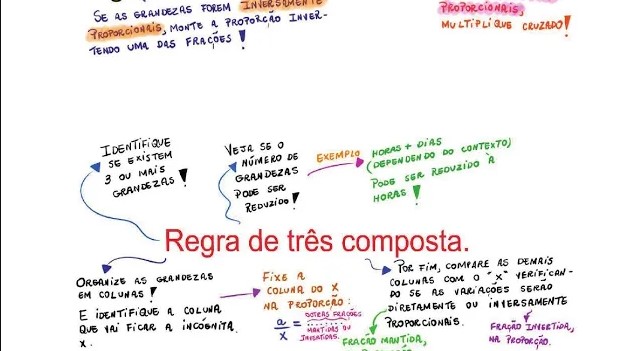 SE AS GRANDEZAS FOREM INVERSAMENTE
PROPORCIONAIS, MONTE A PROPORÇÃO INVER-
TENDO UMA DAS FRAÇÕES!
PROPORCIONAIS,
MULTIPLIQUE CRUZADO!
IDENTIFIQUE
SE EXISTEM
3 OU MAIS
GRANDEZAS!
VEJA SE O
NÚMERO DE
GRANDEZAS
PODE SER
REDUZIDO!
EXEMPLO
HORAS + DIAS
(DEPENDENDO DO CONTEXTO)
PODE SER REDUZIDO À
HORAS!
Regra de três composta.
ORGANIZE AS GRANDEZAS
EM COLUNAS!
E IDENTIFIQUE A COLUNA
QUE VAI FICAR A INCÓGNITA
X.
FIXE A
COLUNA DO X
NA PROPORÇÃO:
a/x = OUTRAS FRAÇÕES
MANTIDAS OU
INVERTIDAS.
POR FIM, COMPARE AS DEMAIS
COLUNAS COM O "X" VERIFICAN-
DO SE AS VARIAÇÕES SERÃO
DIRETAMENTE OU INVERSAMENTE
PROPORCIONAIS.
FRAÇÃO INVERTIDA,
NA PROPORÇÃO.
FRAÇÃO MANTIDA,